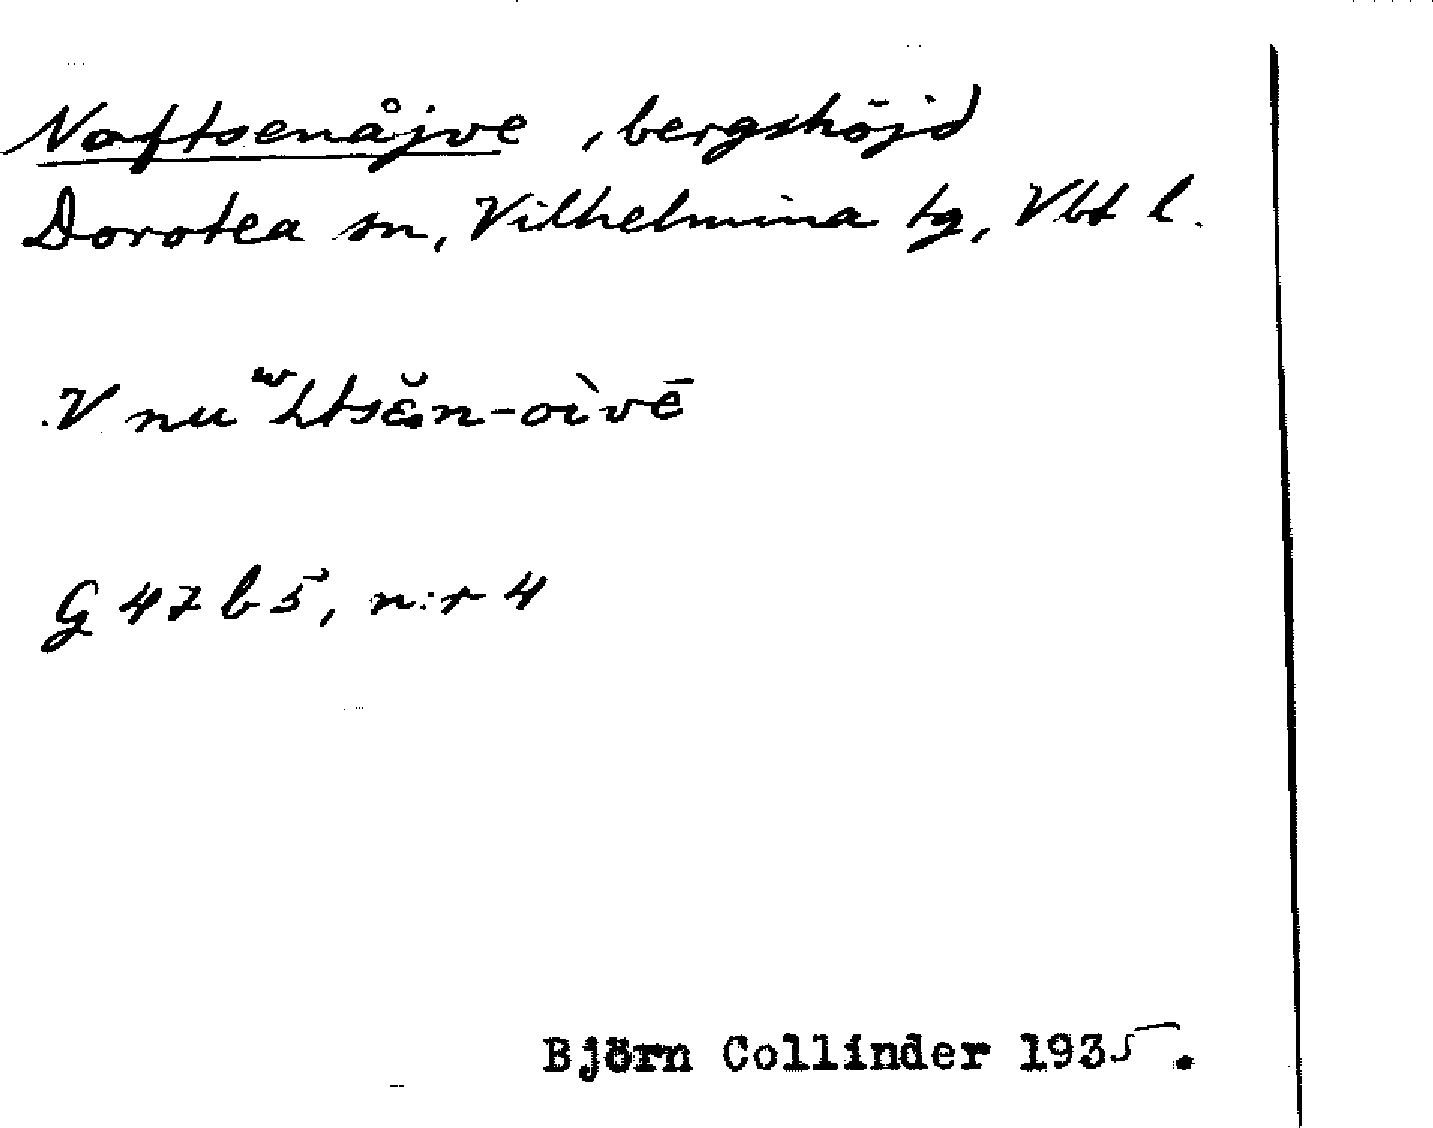 Noftsenåjve , bergshöjd
Dorotea sn, Vilhelmina tg, Vbt l.
V nu
G 47 b 5, n:r 4
Björn Collinder 1935.